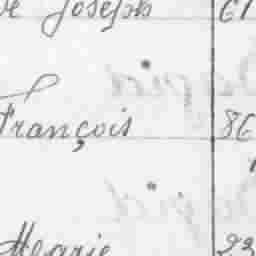 de Joseph 61
François 86
Marie 23